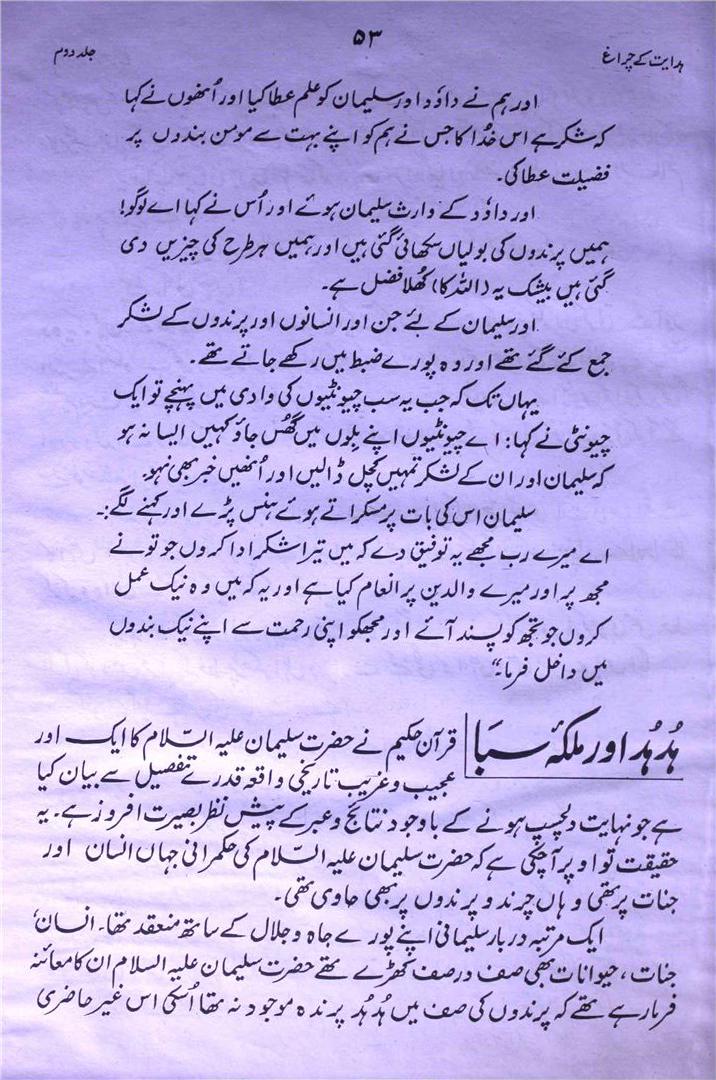 ہدایت کے چراغ ۵۳ جلد دوم
اور ہم نے داؤد اور سلیمان کو علم عطا کیا اور اُنھوں نے کہا
کہ شکر ہے اس خُدا کا جس نے ہم کو اپنے بہت سے مومن بندوں پر
فضیلت عطا کی۔
اور داؤد کے وارث سلیمان ہوئے اور اُس نے کہا اے لوگو!
ہمیں پرندوں کی بولیاں سکھائی گئی ہیں اور ہمیں ہر طرح کی چیزیں دی
گئی ہیں بیشک یہ (اللہ کا) کُھلا فضل ہے۔
اور سلیمان کے لئے جن اور انسانوں اور پرندوں کے لشکر
جمع کئے گئے تھے اور وہ پورے ضبط میں رکھے جاتے تھے۔
یہاں تک کہ جب یہ سب چیونٹیوں کی وادی میں پہنچے تو ایک
چیونٹی نے کہا: اے چیونٹیوں اپنے بِلوں میں گھُس جاؤ کہیں ایسا نہ ہو
کہ سلیمان اور ان کے لشکر تمہیں کچل ڈالیں اور اُنھیں خبر بھی نہو۔
سلیمان اس کی بات پر مسکراتے ہوئے ہنس پڑے اور کہنے لگے:۔
اے میرے رب مجھے یہ توفیق دے کہ میں تیرا شکر ادا کروں جو تو نے
مجھ پر اور میرے والدین پر انعام کیا ہے اور یہ کہ میں وہ نیک عمل
کروں جو تجھ کو پسند آئے اور مجھکو اپنی رحمت سے اپنے نیک بندوں
میں داخل فرما۔"
ہُدہُد اور ملکۂ سبَا
قرآن حکیم نے حضرت سلیمان علیہ السّلام کا ایک اور
عجیب و غریب تاریخی واقعہ قدرے تفصیل سے بیان کیا
ہے جو نہایت دلچسپ ہونے کے باوجود نتائج و عبر کے پیش نظر بصیرت افروز ہے۔ یہ
حقیقت تو اوپر آچکی ہے کہ حضرت سلیمان علیہ السّلام کی حکمرانی جہاں انسان اور
جنات پر تھی وہاں چرند و پرندوں پر بھی حاوی تھی۔
ایک مرتبہ دربار سلیمانی اپنے پورے جاہ و جلال کے ساتھ منعقد تھا۔ انسان،
جنات، حیوانات بھی صف در صف کھڑے تھے حضرت سلیمان علیہ السلام ان کا معائنہ
فرما رہے تھے کہ پرندوں کی صف میں ہُدہُد پرندہ موجود نہ تھا اُسکی اس غیر حاضری